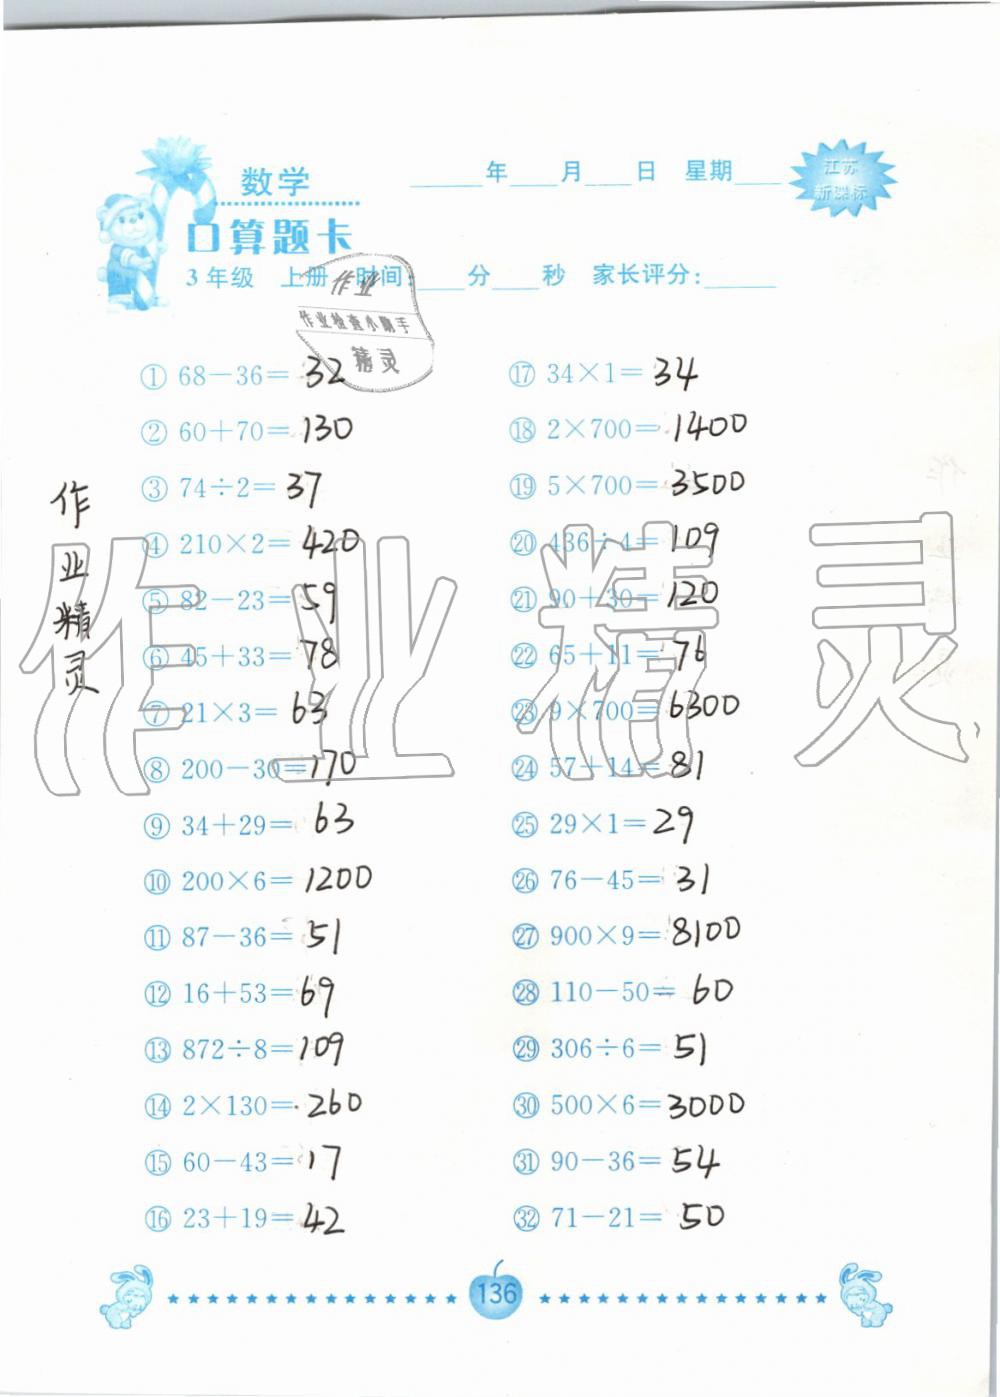 数学
____年____月____日 星期____
江苏
新课标
口算题卡
3年级 上册 时间:____分____秒 家长评分:______
作业
作业检查小助手
精灵
① 68－36＝ 32
② 60＋70＝ 130
③ 74÷2＝ 37
④ 210×2＝ 420
⑤ 82－23＝ 59
⑥ 45＋33＝ 78
⑦ 21×3＝ 63
⑧ 200－30＝ 170
⑨ 34＋29＝ 63
⑩ 200×6＝ 1200
⑪ 87－36＝ 51
⑫ 16＋53＝ 69
⑬ 872÷8＝ 109
⑭ 2×130＝ 260
⑮ 60－43＝ 17
⑯ 23＋19＝ 42
⑰ 34×1＝ 34
⑱ 2×700＝ 1400
⑲ 5×700＝ 3500
⑳ 436÷4＝ 109
㉑ 90＋30＝ 120
㉒ 65＋11＝ 76
㉓ 9×700＝ 6300
㉔ 57＋14＝ 81
㉕ 29×1＝ 29
㉖ 76－45＝ 31
㉗ 900×9＝ 8100
㉘ 110－50＝ 60
㉙ 306÷6＝ 51
㉚ 500×6＝ 3000
㉛ 90－36＝ 54
㉜ 71－21＝ 50
作业精灵
作业精灵
136